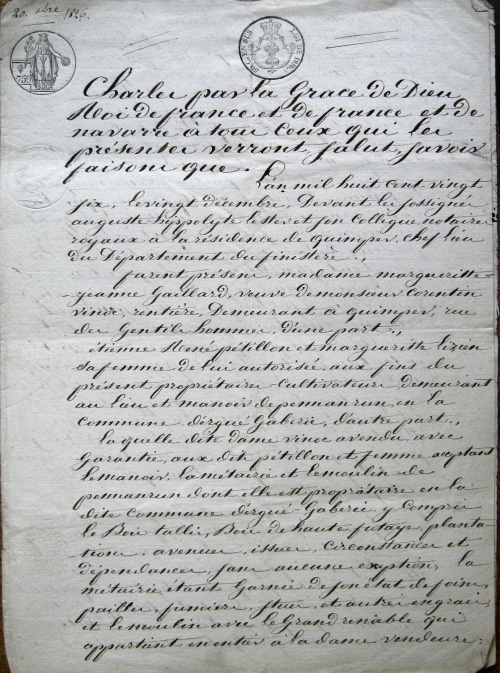 20. xbre 1826.
75c
LOI DE
Charles par la Grace de Dieu
Roi de france et de france et de
navarre à tous Ceux qui les
présentes verront, salut, savoir
faisons que.
L'an mil huit Cent vingt
six, le vingt décembre, Devant les sossigné
auguste hyppolyte et son Collegue notaires
royaux à la résidence de quimper, chef Lieu
du Département du finistère.,
furent présens, madame margueritte-
-jeanne Gaillard, veuve de monsieur Corentin
vinoc, rentière, Demeurant à quimper, rue
des Gentils hommes, d'une part.,
étienne René pétillon et margueritte Lizien
sa femme de lui autorisée, aux fins du
présent propriétaires-Cultivateurs demeurant
au Lieu et manoir de pennanrun, en la
Commune d'ergué-Gaberic, d'autre part.,
La quelle dite dame vinoc a vendu, avec
Garantie, aux dits pétillon et femme acceptant
le manoir, la métairie et le moulin de
pennanrun dont elle est propriétaire en la
dite Commune d'ergué-Gaberic, y Compris
le Bois taillis, Bois de haute futaye, planta-
-tions, avenues, issues, Circonstances et
dépendances, sans aucune exception; la
métairie étant Garnie de son état de foins,
pailles, fumiers, stuc, et autres engrais,
et le moulin avec le Grand renable qui
appartient en entier à la dame vendeure: